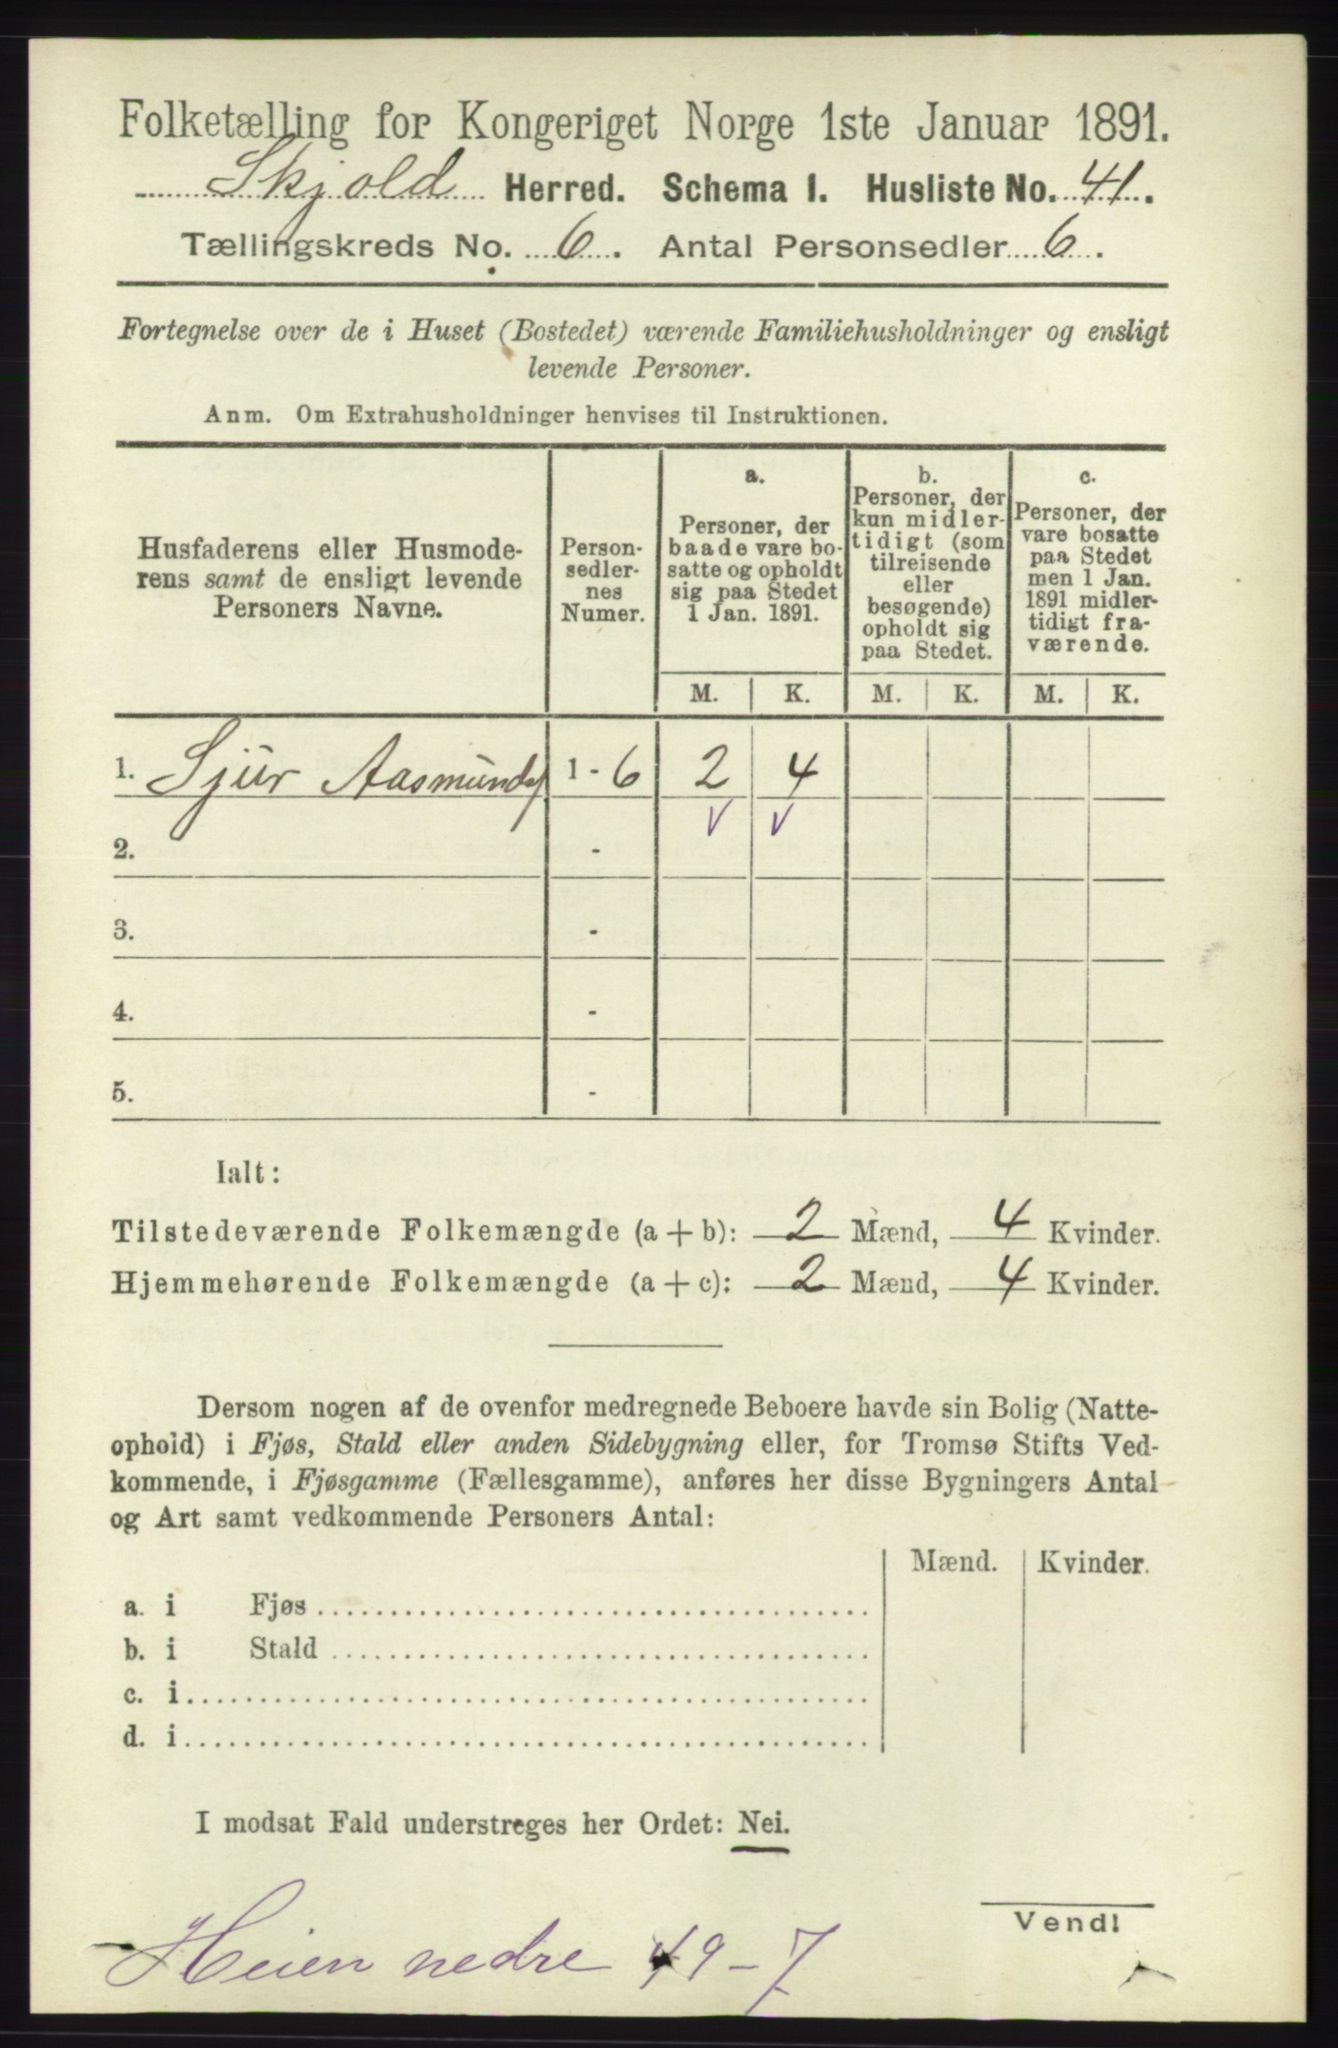 Folketælling for Kongeriget Norge 1ste Januar 1891.
Skjold Herred. Schema 1. Husliste No. 41.
Tællingskreds No. 6. Antal Personsedler 6.
Fortegnelse over de i Huset (Bostedet) værende Familiehusholdninger og ensligt
levende Personer.
Anm. Om Extrahusholdninger henvises til Instruktionen.
Husfaderens eller Husmode-
rens samt de ensligt levende
Personers Navne.
Person-
sedler-
nes
Numer.
a.
Personer, der
baade vare bo-
satte og opholdt
sig paa Stedet
1 Jan. 1891.
b.
Personer, der
kun midler-
tidigt (som
tilreisende
eller
besøgende)
opholdt sig
paa Stedet.
c.
Personer, der
vare bosatte
paa Stedet
men 1 Jan.
1891 midler-
tidigt fra-
værende.
M. K. M. K. M. K.
1. Sjur Aasmunds 1 - 6 2 4
v v
2. -
3. -
4. -
5. -
Ialt:
Tilstedeværende Folkemængde (a + b): 2 Mænd, 4 Kvinder.
Hjemmehørende Folkemængde (a + c): 2 Mænd, 4 Kvinder.
Dersom nogen af de ovenfor medregnede Beboere havde sin Bolig (Natte-
ophold) i Fjøs, Stald eller anden Sidebygning eller, for Tromsø Stifts Ved-
kommende, i Fjøsgamme (Fællesgamme), anføres her disse Bygningers Antal
og Art samt vedkommende Personers Antal:
Mænd. Kvinder.
a. i Fjøs
b. i Stald
c. i
d. i
I modsat Fald understreges her Ordet: Nei.
Vend!
Heien nedre 49-7